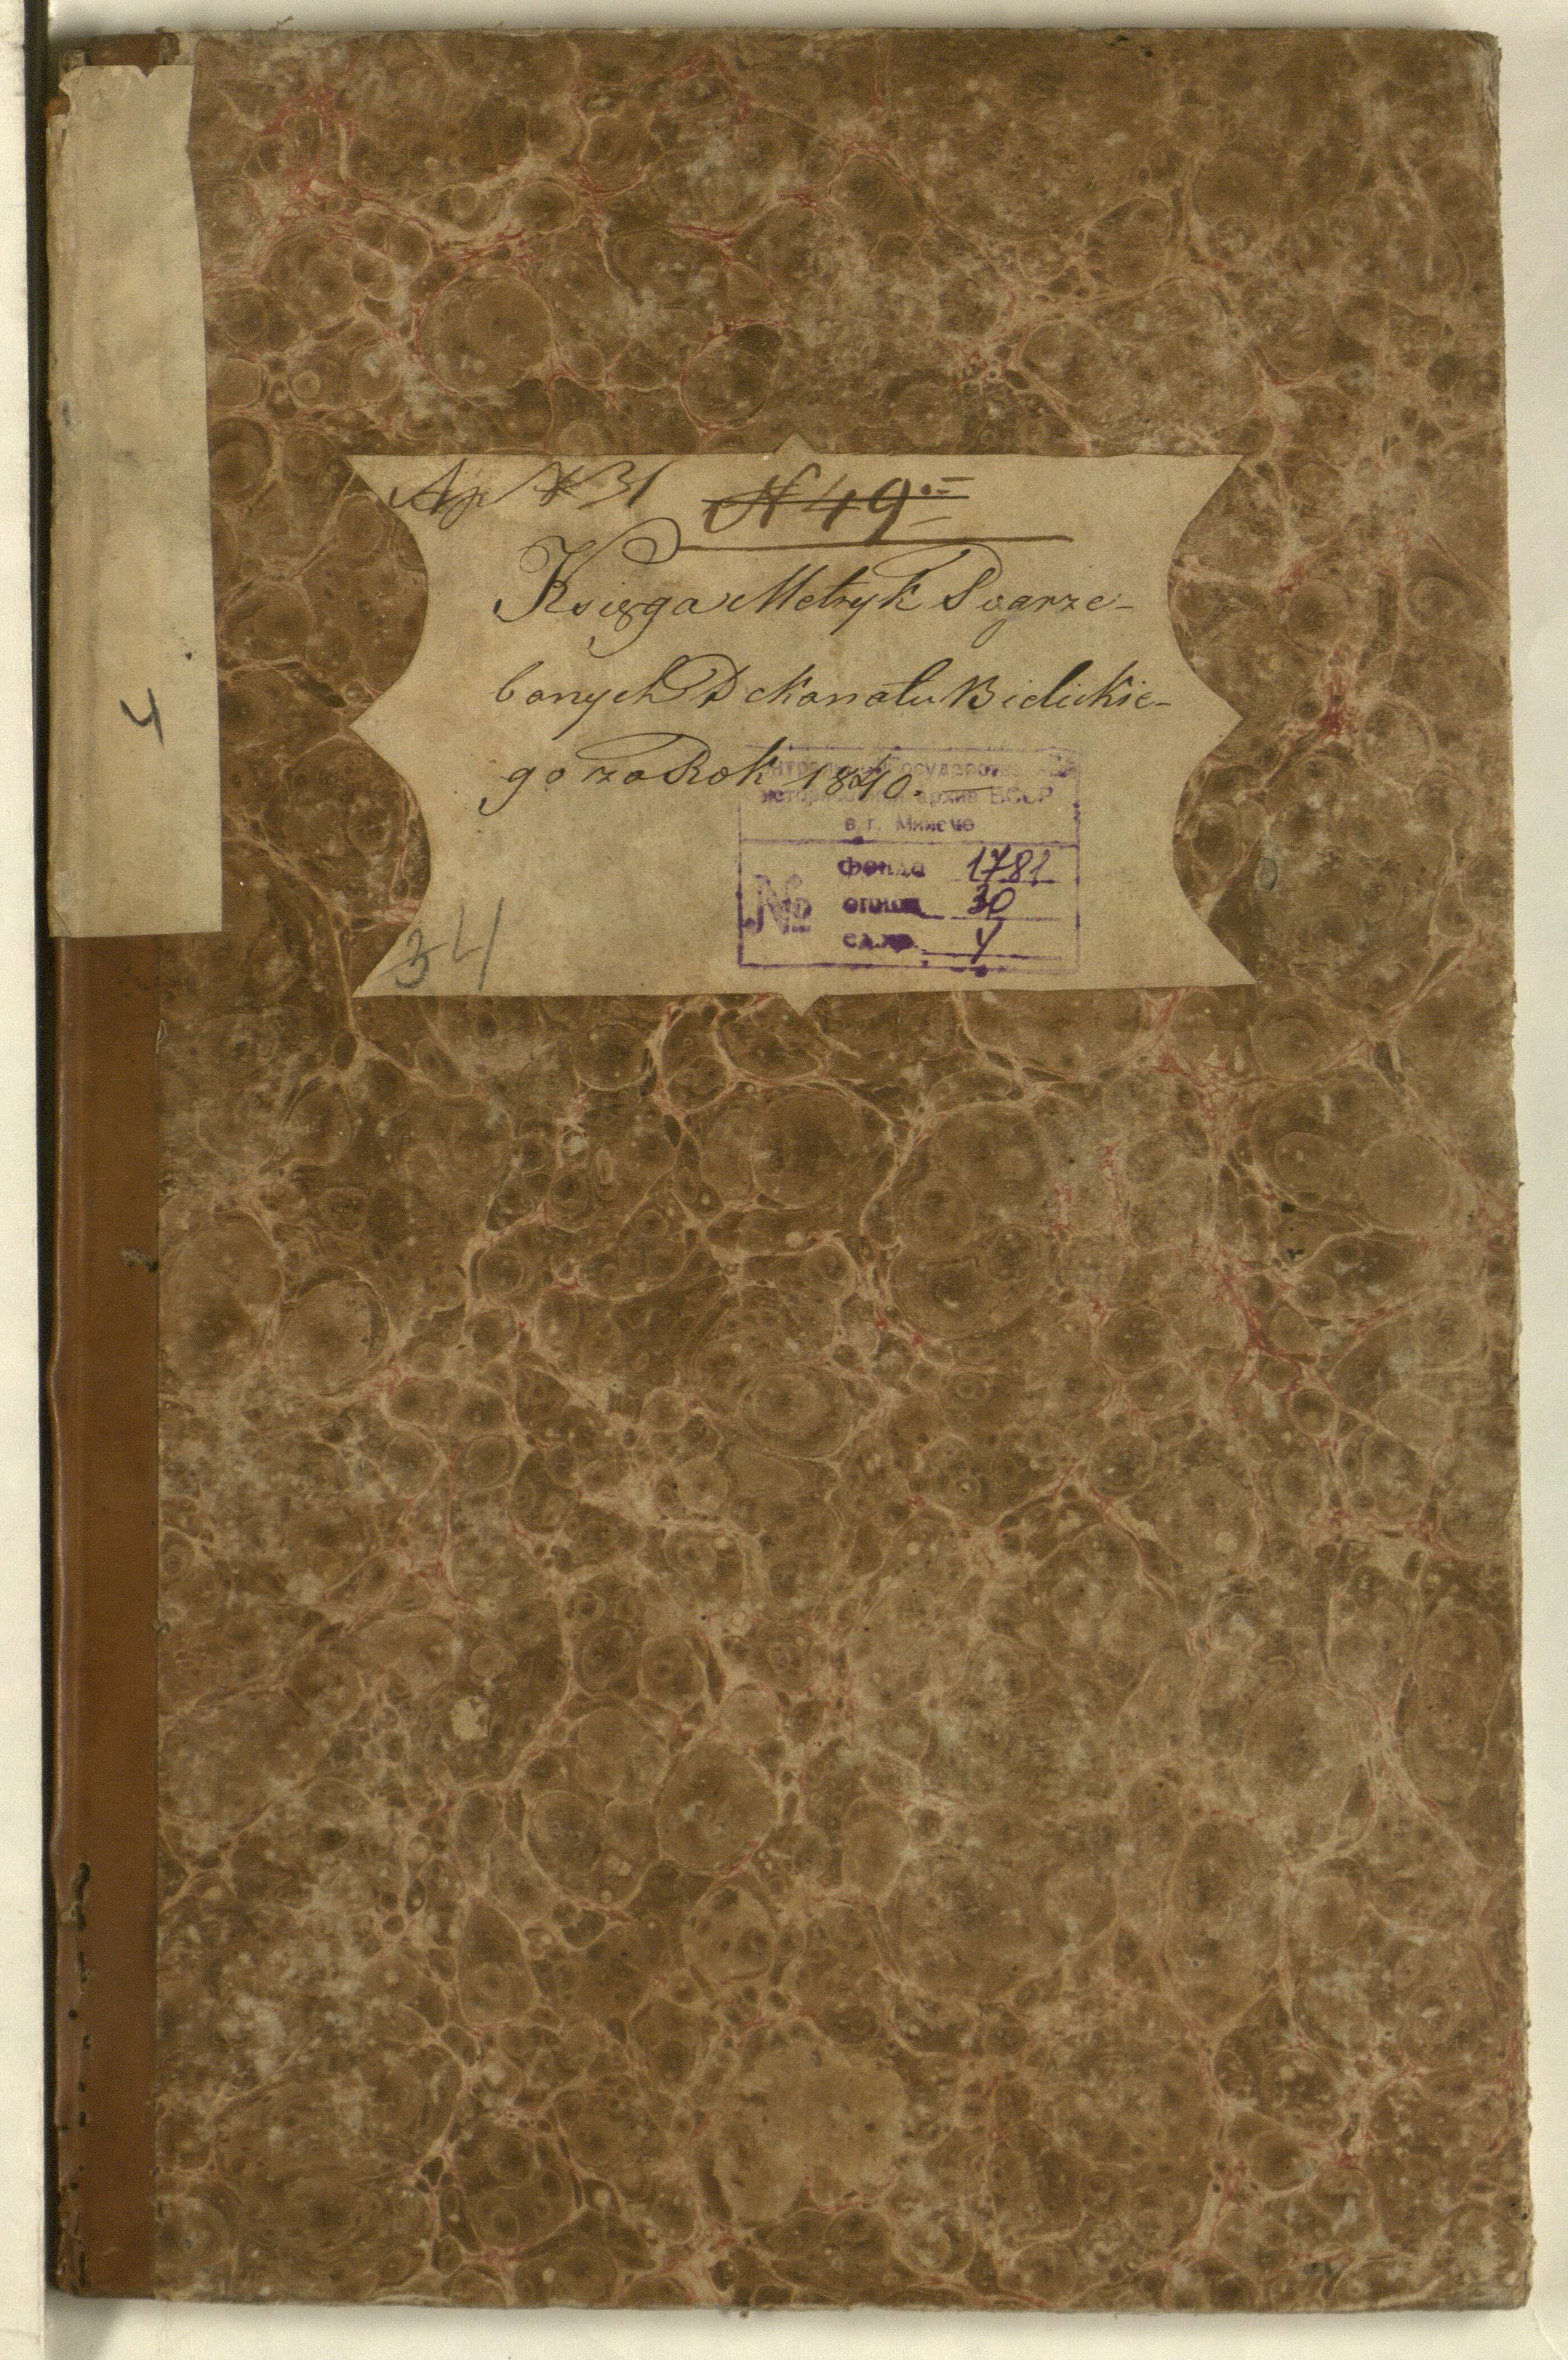 N 31 N 49
Księga Metryk Pogrze-
banych Dekanatu Bielickie-
go za Rok 1840. —
Центральный Государственный
исторический архив БССР
в г. Минске
№ фонда 1781
описи 30
ед.хр. 4
34
4